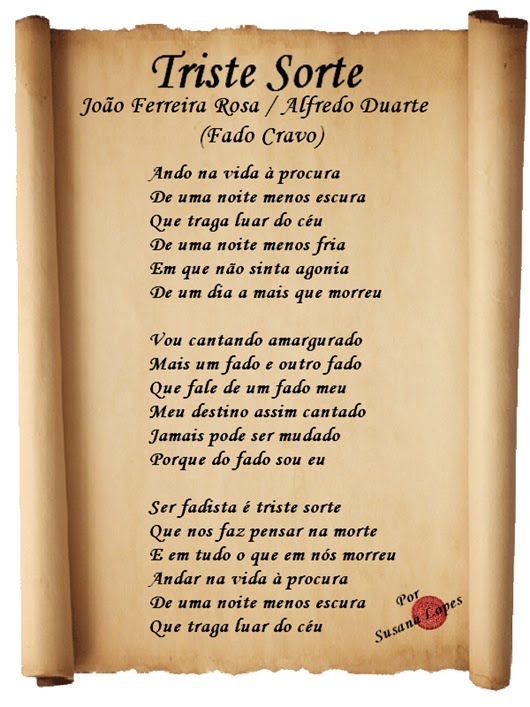 Triste Sorte
João Ferreira Rosa / Alfredo Duarte
(Fado Cravo)
Ando na vida à procura
De uma noite menos escura
Que traga luar do céu
De uma noite menos fria
Em que não sinta agonia
De um dia a mais que morreu
Vou cantando amargurado
Mais um fado e outro fado
Que fale de um fado meu
Meu destino assim cantado
Jamais pode ser mudado
Porque do fado sou eu
Ser fadista é triste sorte
Que nos faz pensar na morte
E em tudo o que em nós morreu
Andar na vida à procura
De uma noite menos escura
Que traga luar do céu
Por
Susana Lopes